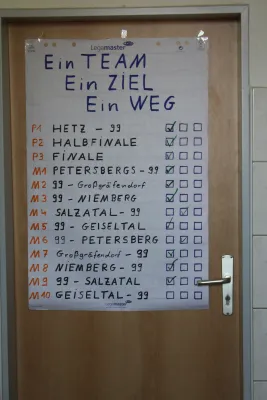 Legamaster
Ein TEAM
Ein ZIEL
Ein WEG
P1 HETZ - 99
P2 HALBFINALE
P3 FINALE
M1 PETERSBERGS - 99
M2 99 - Großgräfendorf
M3 99 - NIEMBERG
M4 SALZATAL - 99
M5 99 - GEISELTAL
M6 99 - PETERSBERG
M7 Großgräfendorf - 99
M8 NIEMBERG - 99
M9 99 - SALZATAL
M10 GEISELTAL - 99